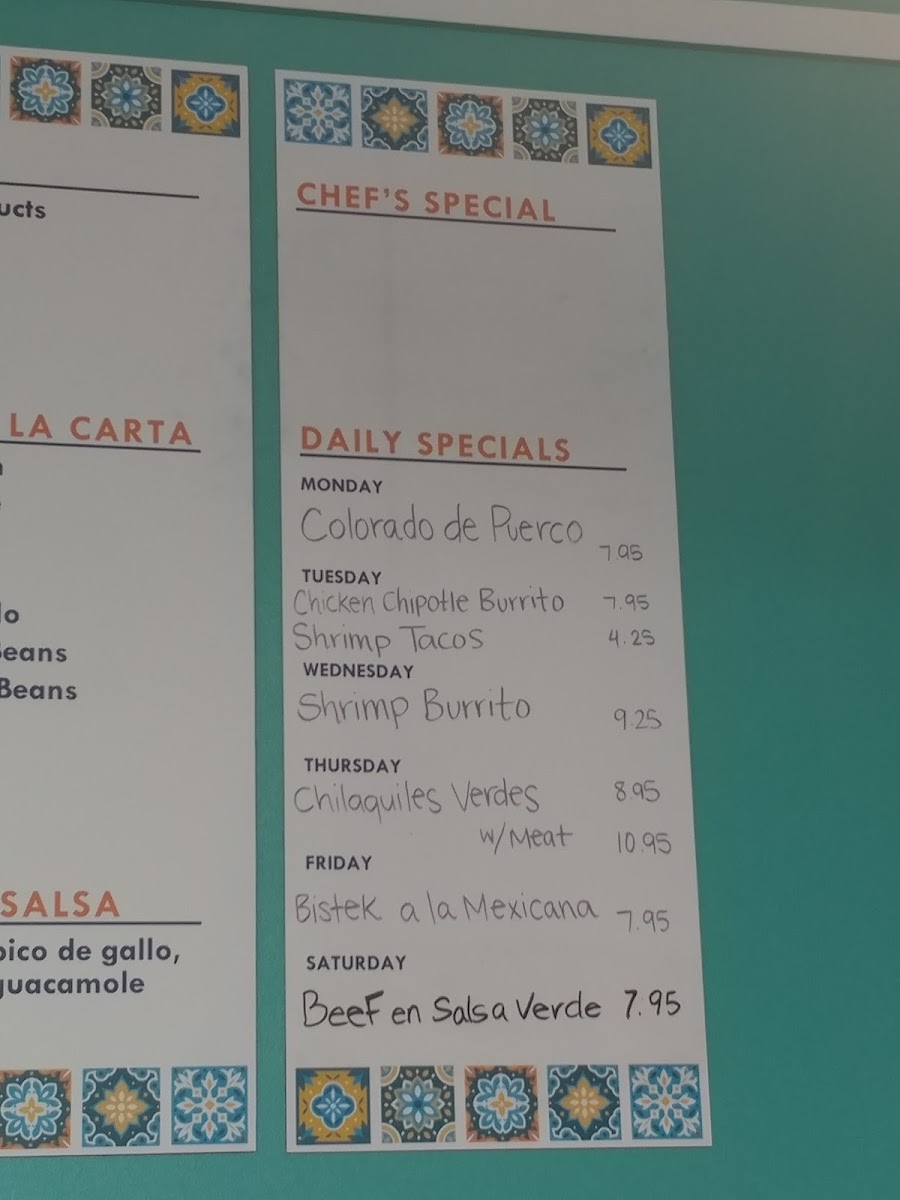 ucts
LA CARTA
lo
Beans
Beans
SALSA
pico de gallo,
guacamole
CHEF'S SPECIAL
DAILY SPECIALS
MONDAY
Colorado de Puerco 7.95
TUESDAY
Chicken Chipotle Burrito 7.95
Shrimp Tacos 4.25
WEDNESDAY
Shrimp Burrito 9.25
THURSDAY
Chilaquiles Verdes 8.95
w/Meat 10.95
FRIDAY
Bistek a la Mexicana 7.95
SATURDAY
Beef en Salsa Verde 7.95